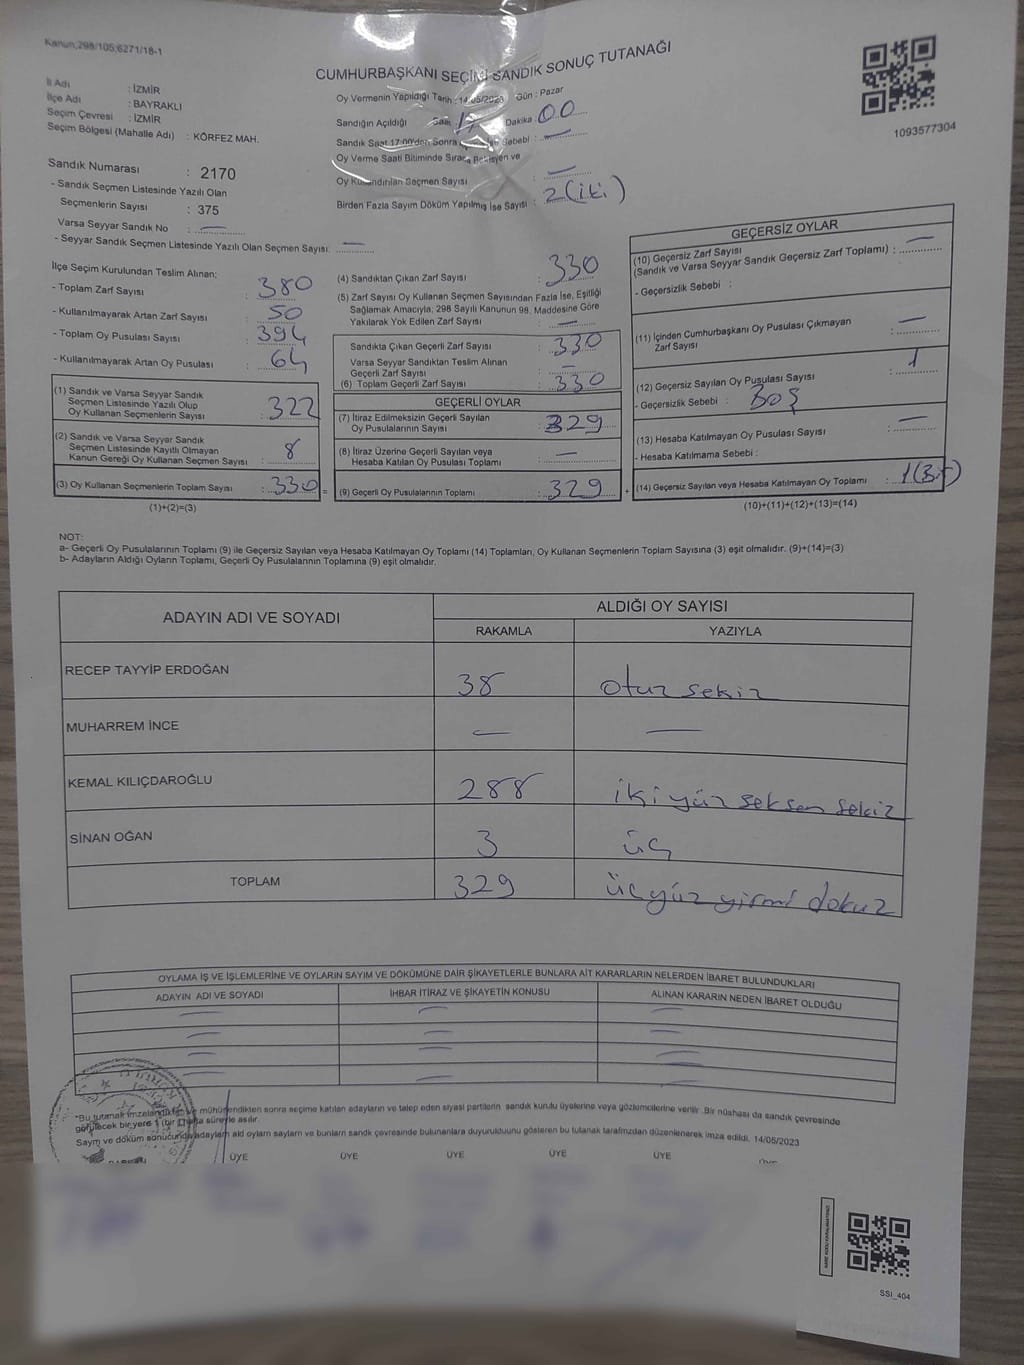 Kanun;298/105;6271/18-1
CUMHURBAŞKANI SEÇİMİ SANDIK SONUÇ TUTANAĞI
1093577304
İl Adı : İZMİR
İlçe Adı : BAYRAKLI
Seçim Çevresi : İZMİR
Seçim Bölgesi (Mahalle Adı) : KÖRFEZ MAH.
Oy Vermenin Yapıldığı Tarih : 14/05/2023 Gün : Pazar
Sandığın Açıldığı Saat : 17 Dakika : 00
Sandık Saat 17:00'den Sonra Sebebi : —
Oy Verme Saati Bitiminde Sırada Bekleyen ve
Oy Kullandırılan Seçmen Sayısı : —
Birden Fazla Sayım Döküm Yapılmış İse Sayısı : 2 (iki)
Sandık Numarası : 2170
- Sandık Seçmen Listesinde Yazılı Olan
Seçmenlerin Sayısı : 375
Varsa Seyyar Sandık No : —
- Seyyar Sandık Seçmen Listesinde Yazılı Olan Seçmen Sayısı: —
İlçe Seçim Kurulundan Teslim Alınan;
- Toplam Zarf Sayısı : 380
- Kullanılmayarak Artan Zarf Sayısı : 50
- Toplam Oy Pusulası Sayısı : 394
- Kullanılmayarak Artan Oy Pusulası : 64
(1) Sandık ve Varsa Seyyar Sandık
Seçmen Listesinde Yazılı Olup
Oy Kullanan Seçmenlerin Sayısı : 322
(2) Sandık ve Varsa Seyyar Sandık
Seçmen Listesinde Kayıtlı Olmayan
Kanun Gereği Oy Kullanan Seçmen Sayısı : 8
(3) Oy Kullanan Seçmenlerin Toplam Sayısı : 330 =
(1)+(2)=(3)
(4) Sandıktan Çıkan Zarf Sayısı : 330
(5) Zarf Sayısı Oy Kullanan Seçmen Sayısından Fazla İse, Eşitliği
Sağlamak Amacıyla; 298 Sayılı Kanunun 98. Maddesine Göre
Yakılarak Yok Edilen Zarf Sayısı : —
Sandıkta Çıkan Geçerli Zarf Sayısı : 330
Varsa Seyyar Sandıktan Teslim Alınan
Geçerli Zarf Sayısı : —
(6) Toplam Geçerli Zarf Sayısı : 330
GEÇERLİ OYLAR
(7) İtiraz Edilmeksizin Geçerli Sayılan
Oy Pusulalarının Sayısı : 329
(8) İtiraz Üzerine Geçerli Sayılan veya
Hesaba Katılan Oy Pusulası Toplamı : —
(9) Geçerli Oy Pusulalarının Toplamı : 329 +
GEÇERSİZ OYLAR
(10) Geçersiz Zarf Sayısı
(Sandık ve Varsa Seyyar Sandık Geçersiz Zarf Toplamı) : —
- Geçersizlik Sebebi :
(11) İçinden Cumhurbaşkanı Oy Pusulası Çıkmayan
Zarf Sayısı : —
(12) Geçersiz Sayılan Oy Pusulası Sayısı : 1
- Geçersizlik Sebebi : BOŞ
(13) Hesaba Katılmayan Oy Pusulası Sayısı : —
- Hesaba Katılmama Sebebi :
(14) Geçersiz Sayılan veya Hesaba Katılmayan Oy Toplamı : 1 (Bir)
(10)+(11)+(12)+(13)=(14)
NOT:
a- Geçerli Oy Pusulalarının Toplamı (9) ile Geçersiz Sayılan veya Hesaba Katılmayan Oy Toplamı (14) Toplamları, Oy Kullanan Seçmenlerin Toplam Sayısına (3) eşit olmalıdır. (9)+(14)=(3)
b- Adayların Aldığı Oyların Toplamı, Geçerli Oy Pusulalarının Toplamına (9) eşit olmalıdır.
ADAYIN ADI VE SOYADI
ALDIĞI OY SAYISI
RAKAMLA YAZIYLA
RECEP TAYYİP ERDOĞAN 38 otuz sekiz
MUHARREM İNCE — —
KEMAL KILIÇDAROĞLU 288 iki yüz seksen sekiz
SİNAN OĞAN 3 üç
TOPLAM 329 üçyüz yirmi dokuz
OYLAMA İŞ VE İŞLEMLERİNE VE OYLARIN SAYIM VE DÖKÜMÜNE DAİR ŞİKAYETLERLE BUNLARA AİT KARARLARIN NELERDEN İBARET BULUNDUKLARI
ADAYIN ADI VE SOYADI İHBAR İTİRAZ VE ŞİKAYETİN KONUSU ALINAN KARARIN NEDEN İBARET OLDUĞU
— — —
— — —
— — —
— — —
*Bu tutanak imzalandıktan ve mühürlendikten sonra seçime katılan adayların ve talep eden siyasi partilerin sandık kurulu üyelerine veya gözlemcilerine verilir. Bir nüshası da sandık çevresinde
görülecek bir yere 1 (bir) hafta süreyle asılır.
Sayım ve döküm sonucunda adayların aldığı oyların sayılarını ve bunların sandık çevresinde bulunanlara duyurulduğunu gösteren bu tutanak tarafımızdan düzenlenerek imza edildi. 14/05/2023
BAŞKAN ÜYE ÜYE ÜYE ÜYE ÜYE ÜYE
SSI_404